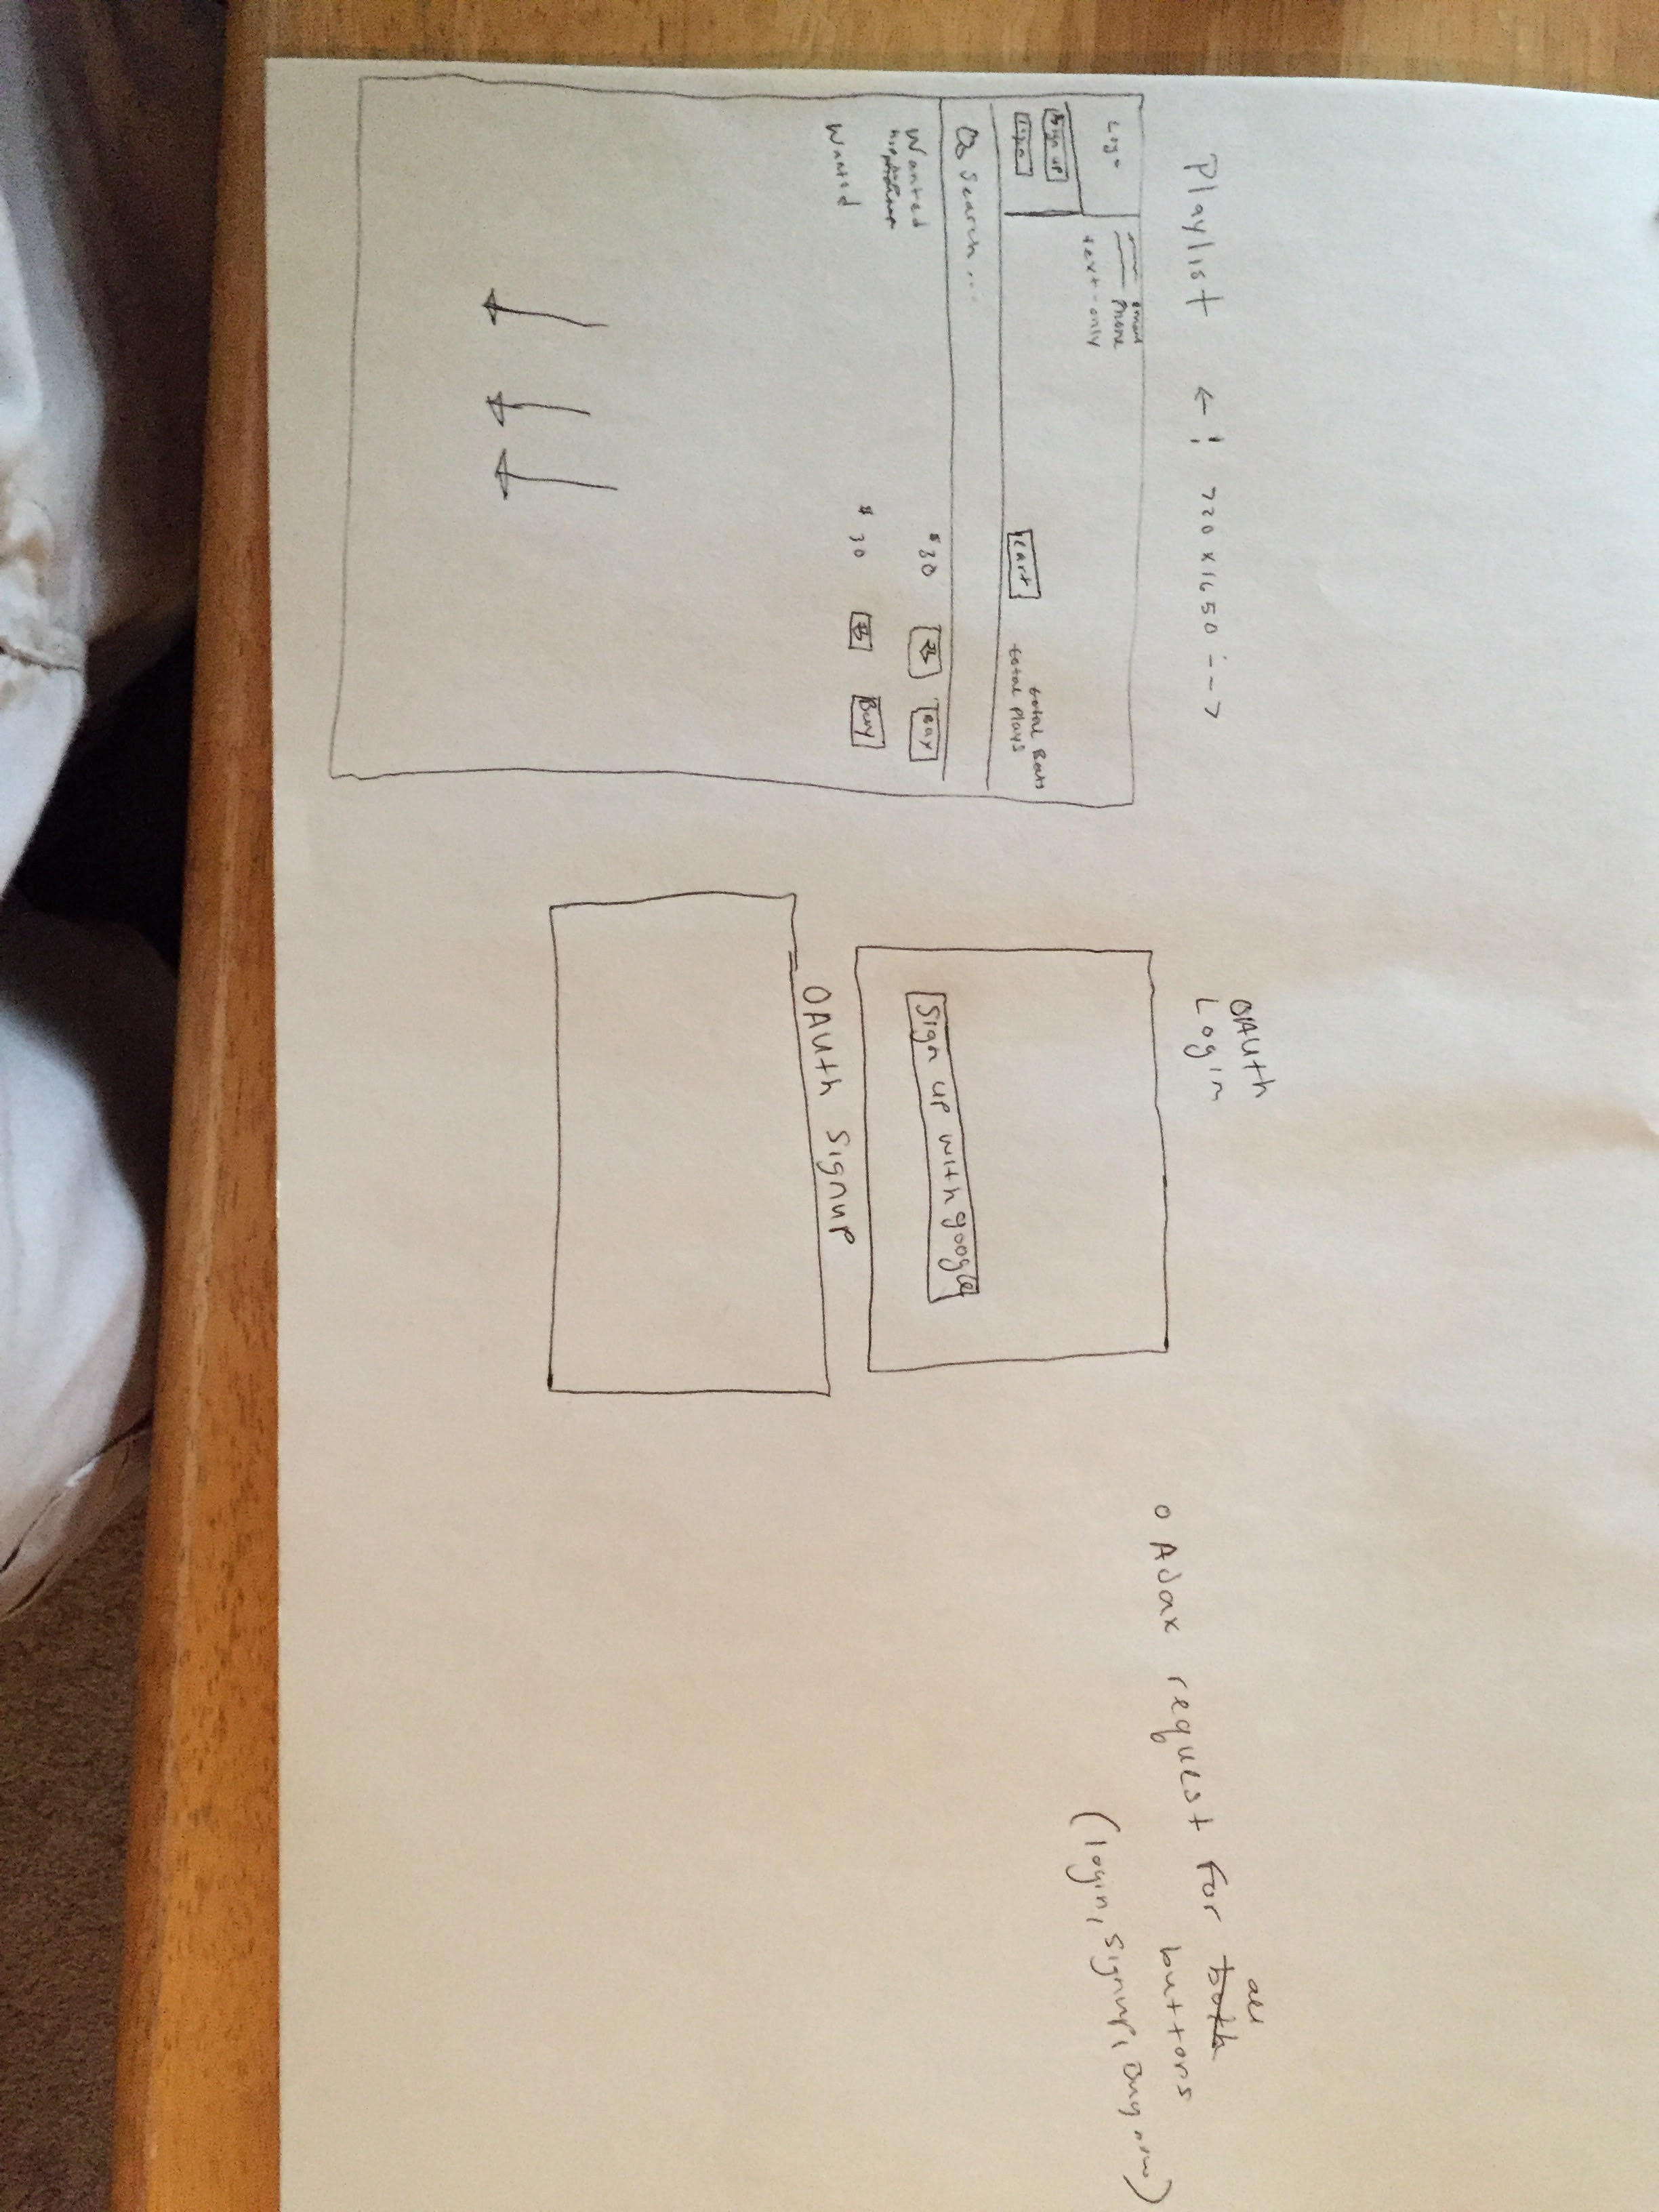 Playlist <-! 720 x 1650 !-->
Logo
email
phone
text-only
Sign up
Login
cart
total Beats
total plays
Search ...
Wanted
$30
Buy
Wanted
$30
Buy
OAuth
Login
Sign up with google
OAuth Signup
o AJax request for all
buttons
(login, signup, Buy now)